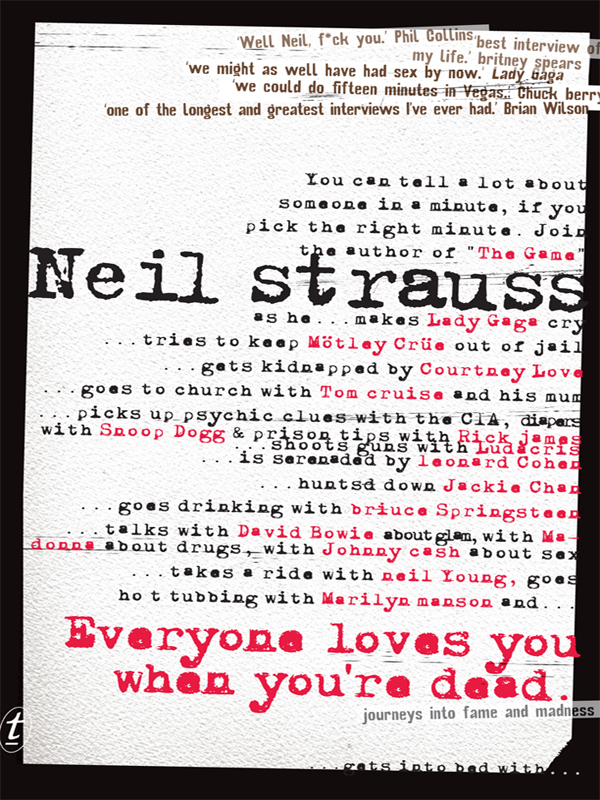 'Well Neil, f*ck you.' Phil Collins.
'best interview of
my life.' britney spears
'we might as well have had sex by now.' Lady Gaga
'we could do fifteen minutes in Vegas.' Chuck berry
'one of the longest and greatest interviews I've ever had.' Brian Wilson
You can tell a lot about
someone in a minute, if you
pick the right minute. Join
the author of "The Game"
Neil strauss
as he...makes Lady Gaga cry
...tries to keep Mötley Crüe out of jail
...gets kidnapped by Courtney Love
...goes to church with Tom cruise and his mum
...picks up psychic clues with the CIA, diapers
with Snoop Dogg & prison tips with Rick james
...shoots guns with Ludacris
...is serenaded by leonard Cohen
...huntsd down Jackie Chan
...goes drinking with briuce Springsteen
...talks with David Bowie about glam, with Ma-
donna about drugs, with Johnny cash about sex
...takes a ride with neil Young, goes
hot tubbing with Marilyn manson and...
Everyone loves you
when you're dead.
journeys into fame and madness
t
...gets into bed with...